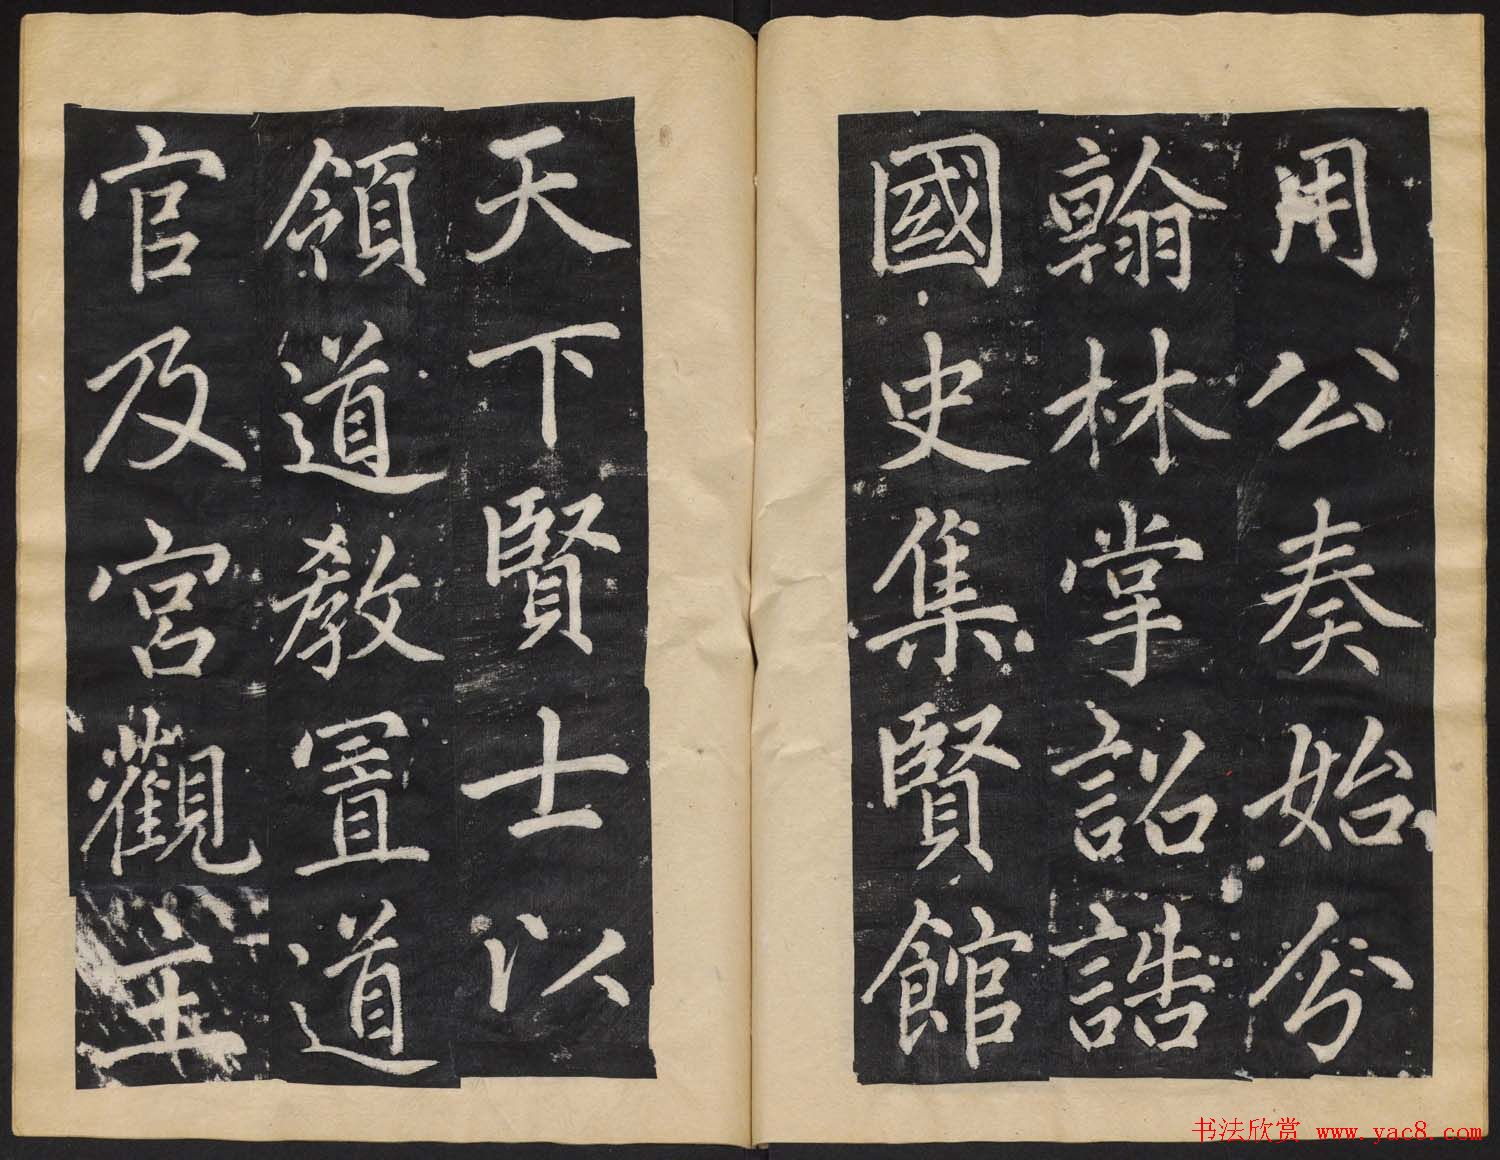 用公奏始分
翰林掌詔誥
國史集賢館
天下賢士以
領道教置道
官及宮觀主
书法欣赏 www.yac8.com